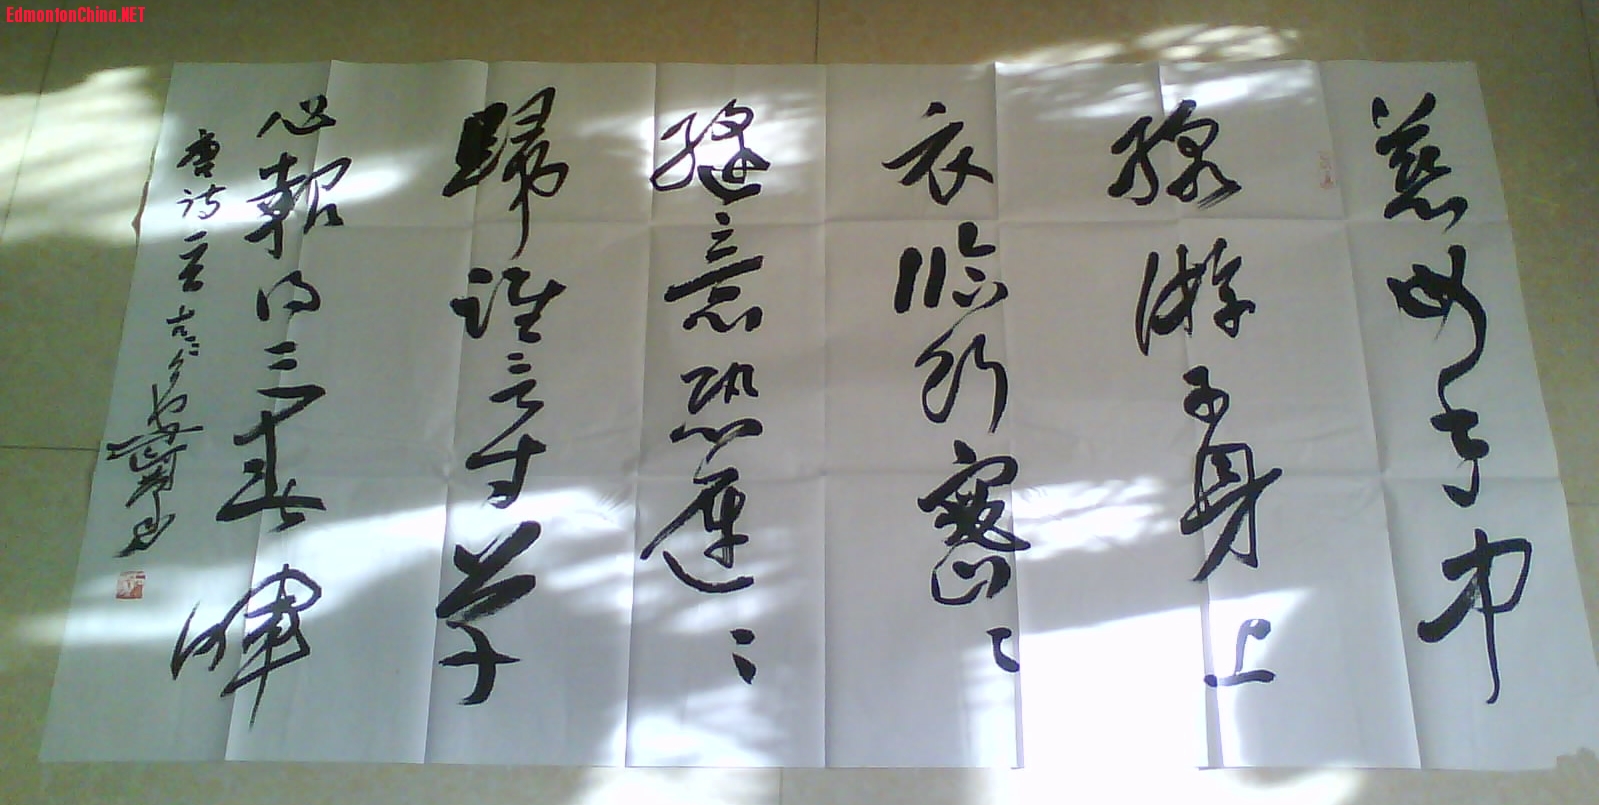 EdmontonChina.NET
慈母手中
線游子身上
衣临行密〻
縫意恐遲〻
歸誰言寸草
心報得三春暉
唐诗一首